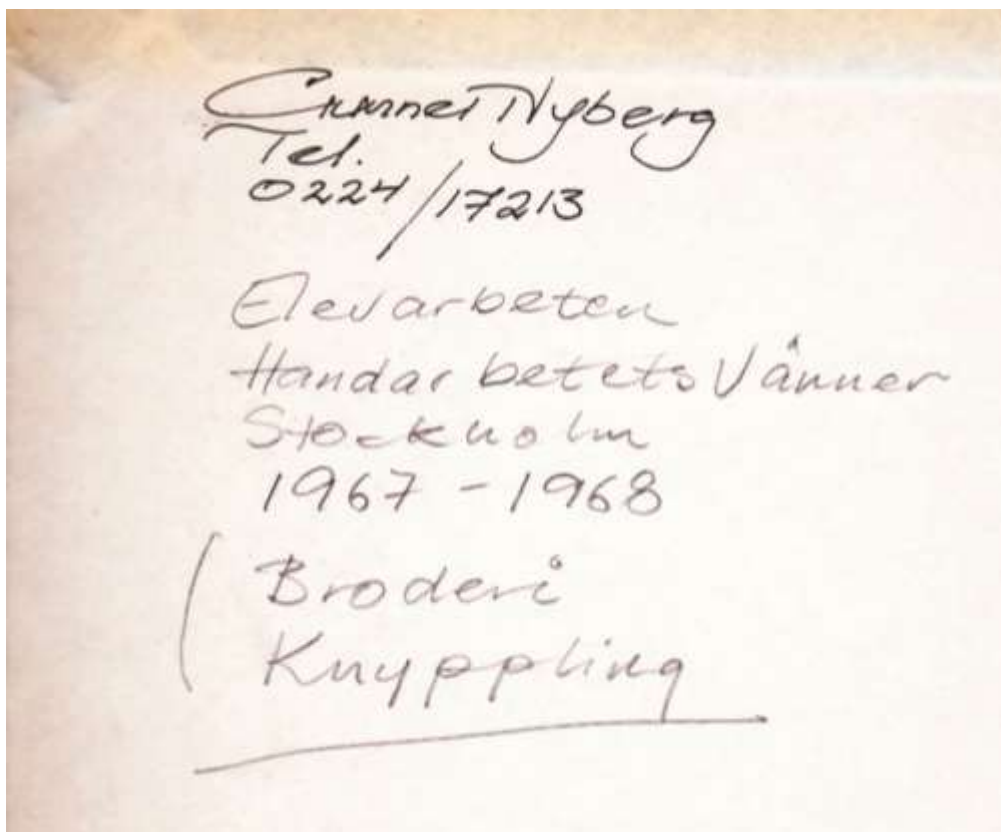 Gunnel Nyberg
Tel.
0224/17213
Elevarbeten
Handarbetets Vänner
Stockholm
1967-1968
Broderi
Knyppling